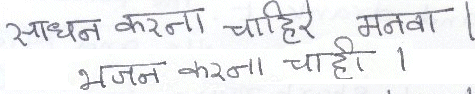 साधन करना चाहिरे मनवा ।
भजन करना चाही ।